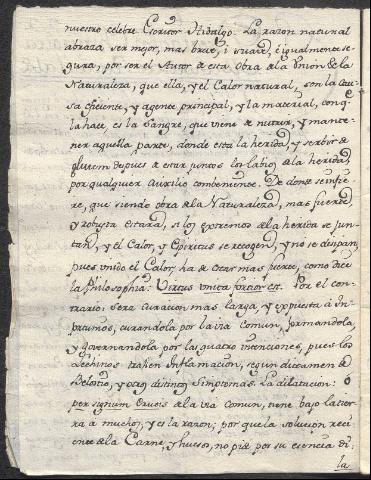 nuestro celebre Escritor Hidalgo. La razon natural
abraza ser mejor, mas breve, i suave, è igualmente se-
gura, por ser el Autor de esta Obra de la Union de la
Naturaleza, que ella, y el Calor natural, son la Cau-
sa eficiente, y agente principal, y la material, con q.
la hace, es la Sangre, que viene de nutrir, y mante-
ner aquella parte, donde esta la herida, y servir de
gluten despues de estar juntos los labios de la herida,
por qualquier Auxilio combeniente. De donde se infie-
re, que siendo obra de la Naturaleza, mas fuerte,
y robusta estarà, si los extremos de la herida se jun-
tan, y el Calor, y Espiritus se recogen, y no se disipan,
pues unido el Calor, ha de estar mas fuerte, como dice
la Philosophia: Virtus unita fortior est. Por el con-
trario sera curacion mas larga, y expuesta à in-
fortunios, curandola por la via Comun, formandola,
y governandola por las quatro intenciones, pues los
Lechinos trahen Inflamacion, segun dictamen de
Belostio, y otros distintos Simptomas. La dilatacion
per signum Crucis de la via Comun, tiene bajo la tier-
ra a muchos, y es la razon; por que la solucion reci-
ente de la Carne, y hueso, no pide por su esencia di-
la